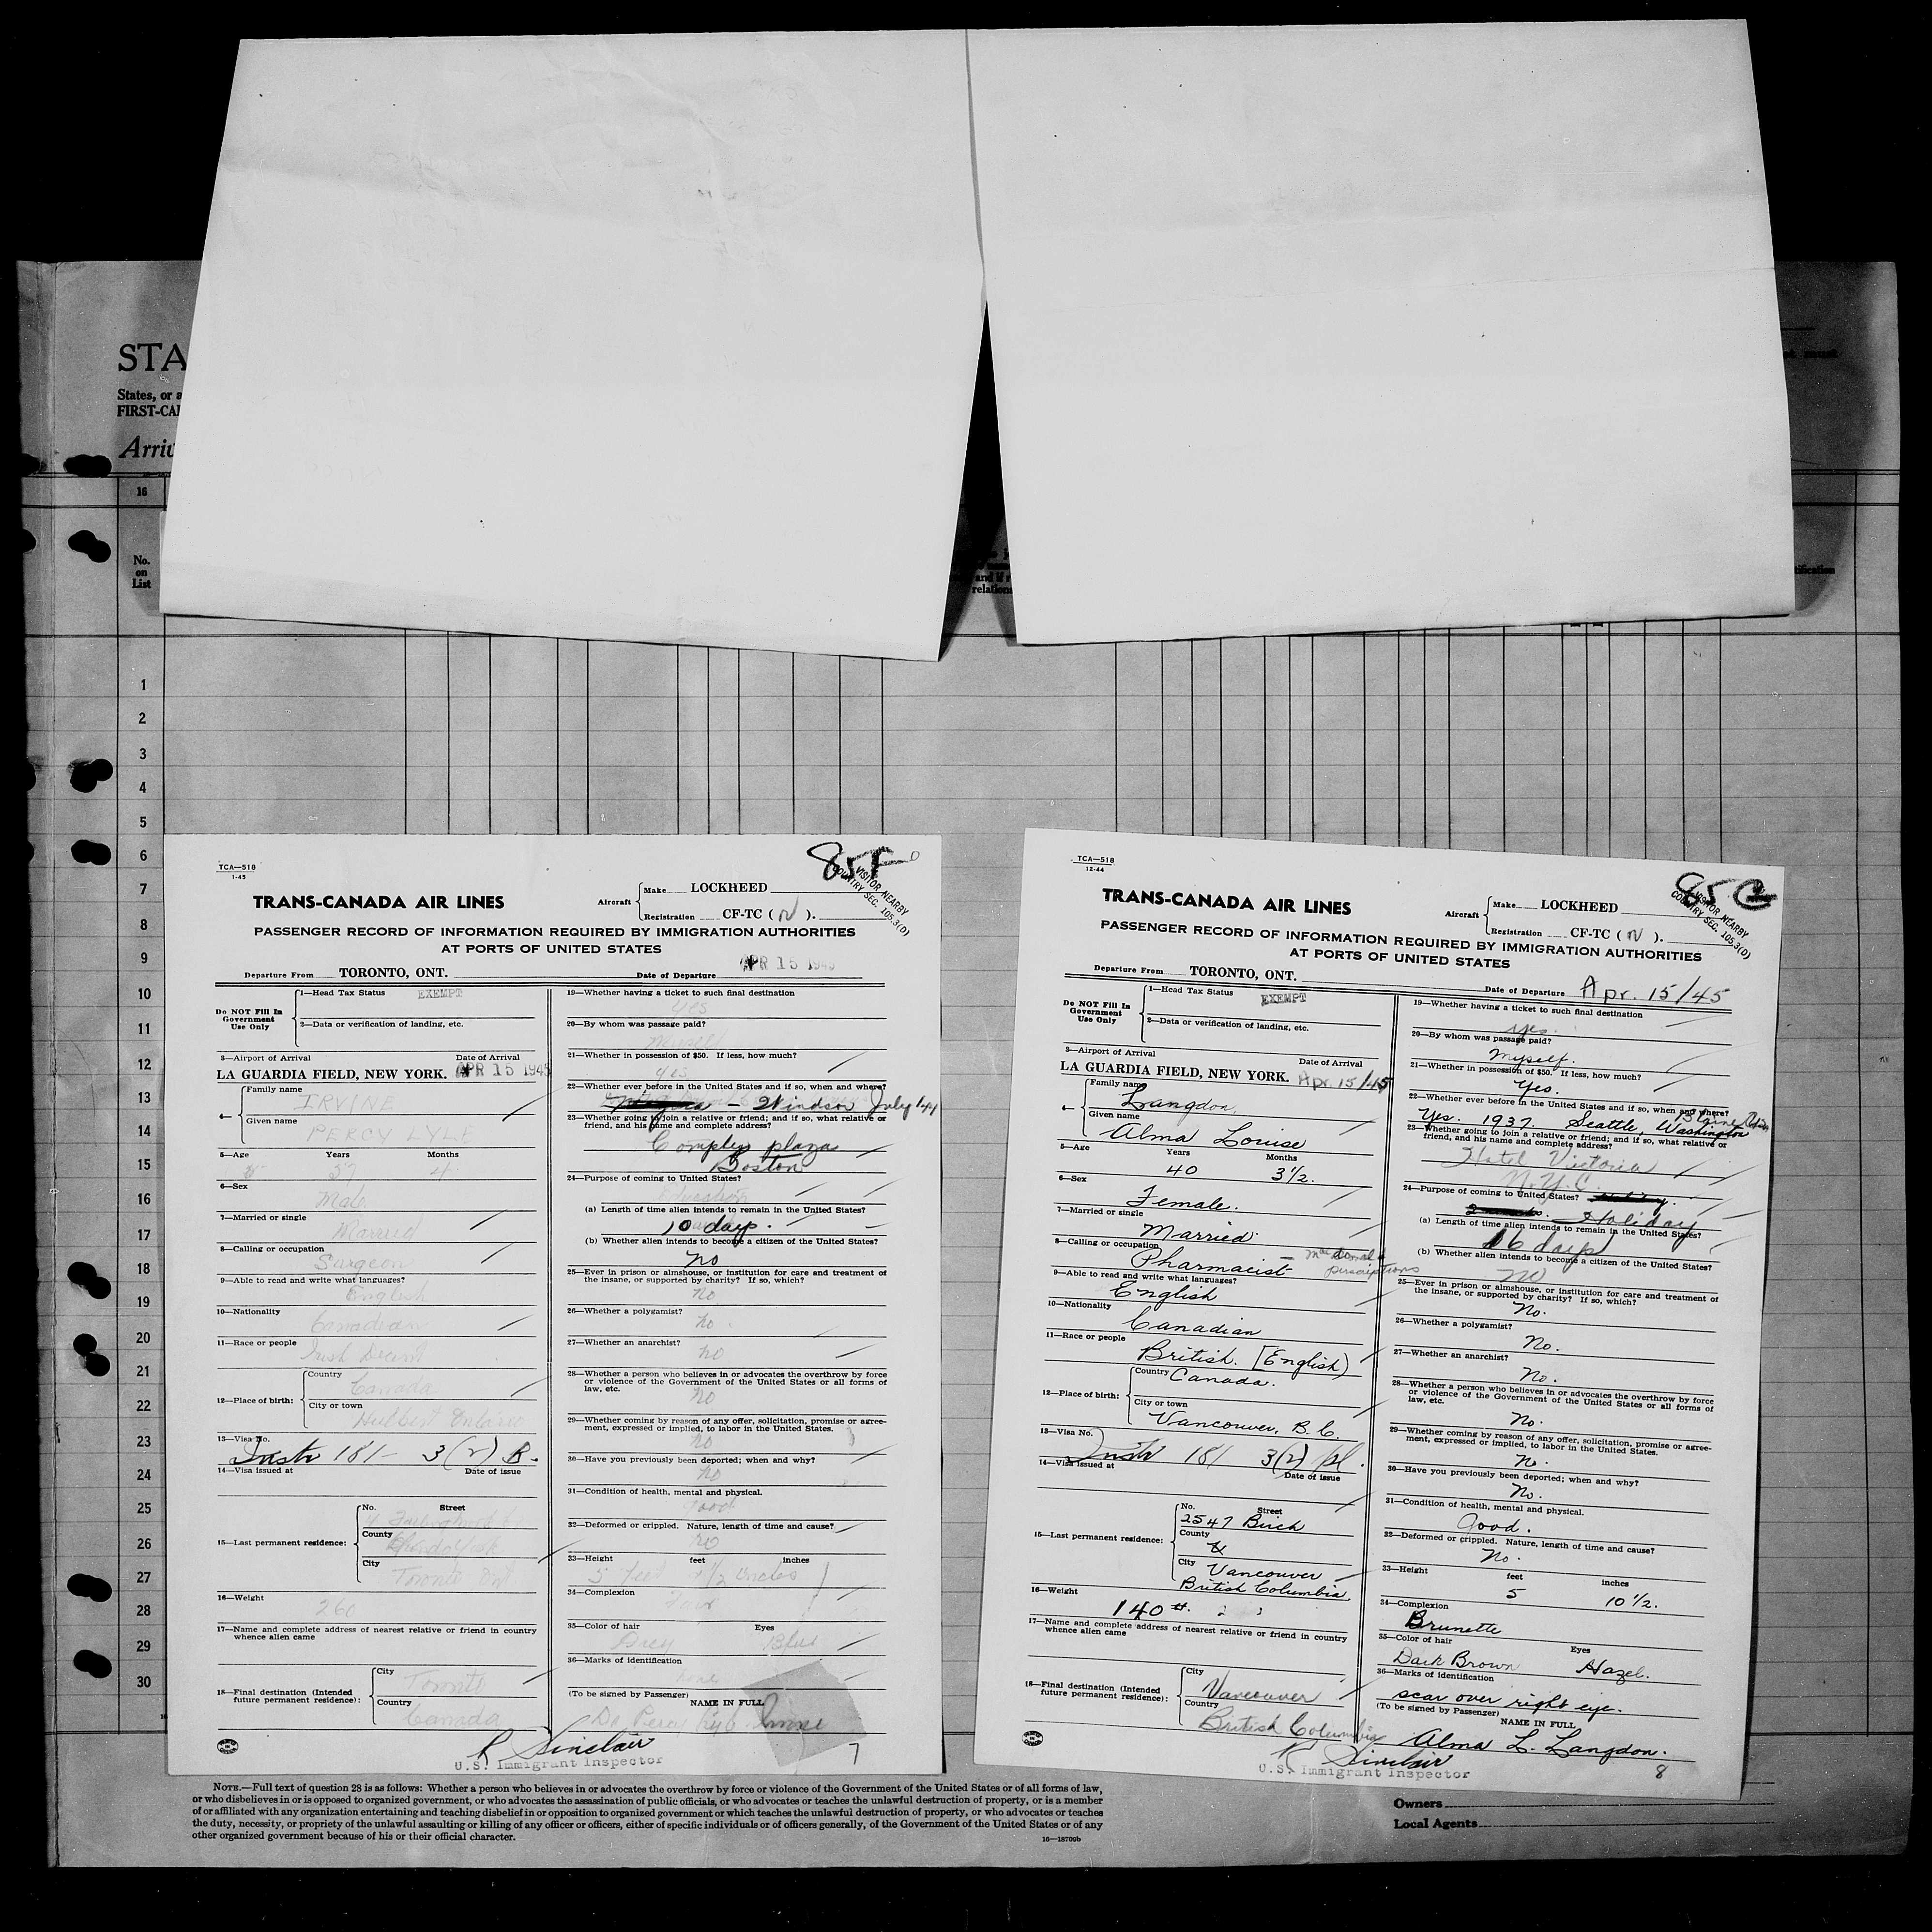 STA
States, or a
FIRST-CAI
Arriv
16
No.
on
List
and if r
relations
tification
1
2
3
4
5
6
7
8
9
10
11
12
13
14
15
16
17
18
19
20
21
22
23
24
25
26
27
28
29
30
TCA—518
1-45
85F
VISITOR NEARBY
COUNTRY SEC. 105.3(D)
TRANS-CANADA AIR LINES
Aircraft
Make LOCKHEED
Registration CF-TC ( N ).
PASSENGER RECORD OF INFORMATION REQUIRED BY IMMIGRATION AUTHORITIES
AT PORTS OF UNITED STATES
Departure From TORONTO, ONT. Date of Departure APR 15 1945
Do NOT Fill In
Government
Use Only
1—Head Tax Status EXEMPT
2—Data or verification of landing, etc.
3—Airport of Arrival Date of Arrival
LA GUARDIA FIELD, NEW YORK. APR 15 1945
4—
Family name
IRVINE
Given name
PERCY LYLE
5—Age Years Months
57 4
6—Sex
Male
7—Married or single
Married
8—Calling or occupation
Surgeon
9—Able to read and write what languages?
English
10—Nationality
Canadian
11—Race or people
Irish Decent
12—Place of birth:
Country
Canada
City or town
Ontario
13—Visa No.
Instr 181- 3(2) B.
14—Visa issued at Date of issue
15—Last permanent residence:
No. Street
County
City
Toronto
16—Weight
260
17—Name and complete address of nearest relative or friend in country
whence alien came
18—Final destination (Intended
future permanent residence):
City
Toronto
Country
Canada
19—Whether having a ticket to such final destination
Yes
20—By whom was passage paid?
Myself
21—Whether in possession of $50. If less, how much?
yes
22—Whether ever before in the United States and if so, when and where?
— Windsor July 1941
23—Whether going to join a relative or friend; and if so, what relative or
friend, and his name and complete address?
Compley plaza
Boston
24—Purpose of coming to United States?
(a) Length of time alien intends to remain in the United States?
10 days.
(b) Whether alien intends to become a citizen of the United States?
no
25—Ever in prison or almshouse, or institution for care and treatment of
the insane, or supported by charity? If so, which?
no
26—Whether a polygamist?
no.
27—Whether an anarchist?
no
28—Whether a person who believes in or advocates the overthrow by force
or violence of the Government of the United States or all forms of
law, etc.
no
29—Whether coming by reason of any offer, solicitation, promise or agree-
ment, expressed or implied, to labor in the United States.
no
30—Have you previously been deported; when and why?
no
31—Condition of health, mental and physical.
good
32—Deformed or crippled. Nature, length of time and cause?
no
33—Height feet inches
5 feet 1/2 inches
34—Complexion
Fair
35—Color of hair Eyes
Grey Blue
36—Marks of identification
none
(To be signed by Passenger)
NAME IN FULL
R Sinclair
U.S. Immigrant Inspector
7
TCA—518
12-44
85
VISITOR NEARBY
COUNTRY SEC. 105.3(D)
TRANS-CANADA AIR LINES
Aircraft
Make LOCKHEED
Registration CF-TC ( N ).
PASSENGER RECORD OF INFORMATION REQUIRED BY IMMIGRATION AUTHORITIES
AT PORTS OF UNITED STATES
Departure From TORONTO, ONT. Date of Departure Apr. 15/45
Do NOT Fill In
Government
Use Only
1—Head Tax Status EXEMPT
2—Data or verification of landing, etc.
3—Airport of Arrival Date of Arrival
LA GUARDIA FIELD, NEW YORK. Apr. 15/45
4—
Family name
Langdon
Given name
Alma Louise
5—Age Years Months
40 3½.
6—Sex
Female.
7—Married or single
Married.
8—Calling or occupation
Pharmacist —
perscriptions
9—Able to read and write what languages?
English
10—Nationality
Canadian
11—Race or people
British. [English)
12—Place of birth:
Country
Canada.
City or town
Vancouver, B.C.
13—Visa No.
Instr 181 3(2) pl.
14—Visa issued at Date of issue
15—Last permanent residence:
No. Street
2547 Birch
County
City
Vancouver
British Columbia
16—Weight
140 #.
17—Name and complete address of nearest relative or friend in country
whence alien came
18—Final destination (Intended
future permanent residence):
City
Vancouver
Country
British Columbia
19—Whether having a ticket to such final destination
yes.
20—By whom was passage paid?
Myself.
21—Whether in possession of $50. If less, how much?
Yes.
22—Whether ever before in the United States and if so, when and where?
Blaine
Yes. 1937. Seattle, Washington
23—Whether going to join a relative or friend; and if so, what relative or
friend, and his name and complete address?
Hotel Victoria
N.Y.C.
24—Purpose of coming to United States?
Holiday
(a) Length of time alien intends to remain in the United States?
16 days
(b) Whether alien intends to become a citizen of the United States?
no
25—Ever in prison or almshouse, or institution for care and treatment of
the insane, or supported by charity? If so, which?
No.
26—Whether a polygamist?
No.
27—Whether an anarchist?
No.
28—Whether a person who believes in or advocates the overthrow by force
or violence of the Government of the United States or all forms of
law, etc.
No.
29—Whether coming by reason of any offer, solicitation, promise or agree-
ment, expressed or implied, to labor in the United States.
No.
30—Have you previously been deported; when and why?
No.
31—Condition of health, mental and physical.
Good.
32—Deformed or crippled. Nature, length of time and cause?
No.
33—Height feet inches
5 10½.
34—Complexion
Brunette
35—Color of hair Eyes
Dark Brown Hazel.
36—Marks of identification
scar over right eye.
(To be signed by Passenger)
NAME IN FULL
Alma L. Langdon.
R Sinclair
U.S. Immigrant Inspector
8
NOTE.—Full text of question 28 is as follows: Whether a person who believes in or advocates the overthrow by force or violence of the Government of the United States or of all forms of law,
or who disbelieves in or is opposed to organized government, or who advocates the assassination of public officials, or who advocates or teaches the unlawful destruction of property, or is a member
of or affiliated with any organization entertaining and teaching disbelief in or opposition to organized government or which teaches the unlawful destruction of property, or who advocates or teaches
the duty, necessity, or propriety of the unlawful assaulting or killing of any officer or officers, either of specific individuals or of officers generally, of the Government of the United States or of any
other organized government because of his or their official character.
16—18709b
Owners
Local Agents